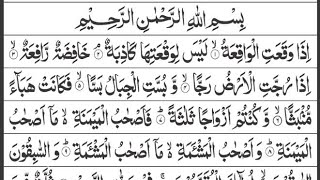 بِسْمِ اللهِ الرَّحْمٰنِ الرَّحِيْمِ
اِذَا وَقَعَتِ الْوَاقِعَةُ ۙ﴿۱﴾ لَيْسَ لِوَقْعَتِهَا كَاذِبَةٌ ۘ﴿۲﴾ خَافِضَةٌ رَّافِعَةٌ ۙ﴿۳﴾
اِذَا رُجَّتِ الْاَرْضُ رَجًّا ۙ﴿۴﴾ وَّ بُسَّتِ الْجِبَالُ بَسًّا ۙ﴿۵﴾ فَكَانَتْ هَبَآءً
مُّنْۢبَثًّا ۙ﴿۶﴾ وَّ كُنْتُمْ اَزْوَاجًا ثَلٰثَةً ؕ﴿۷﴾ فَاَصْحٰبُ الْمَيْمَنَةِ ۙ۬ مَاۤ اَصْحٰبُ
الْمَيْمَنَةِ ؕ﴿۸﴾ وَ اَصْحٰبُ الْمَشْـَٔمَةِ ۙ۬ مَاۤ اَصْحٰبُ الْمَشْـَٔمَةِ ؕ﴿۹﴾ وَ السّٰبِقُوْنَ